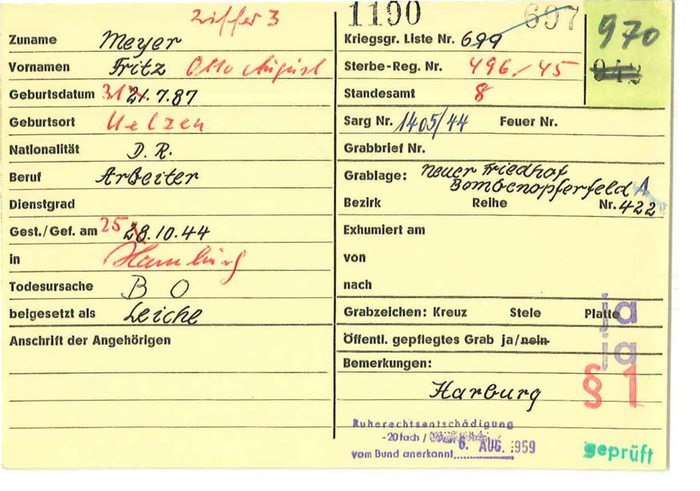 Ziffer 3
1190 697
Zuname Meyer
Vornamen Fritz Otto August
Geburtsdatum 31 21.7.87
Geburtsort Uelzen
Nationalität D. R.
Beruf Arbeiter
Dienstgrad
Gest./Gef. am 25 28.10.44
in Hamburg
Todesursache B O
beigesetzt als Leiche
Anschrift der Angehörigen
Kriegsgr. Liste Nr. 699
970
Sterbe-Reg. Nr. 496/45
942
Standesamt 8
Sarg Nr. 1405/44 Feuer Nr.
Grabbrief Nr.
Grablage: Neuer Friedhof
Bombenopferfeld A
Bezirk Reihe Nr. 422
Exhumiert am
von
nach
Grabzeichen: Kreuz Stele Platte ja
Öffentl. gepflegtes Grab ja/nein ja
Bemerkungen:
Harburg § 1
Ruherechtsentschädigung
-20fach /
6. AUG. 1959
vom Bund anerkannt
geprüft